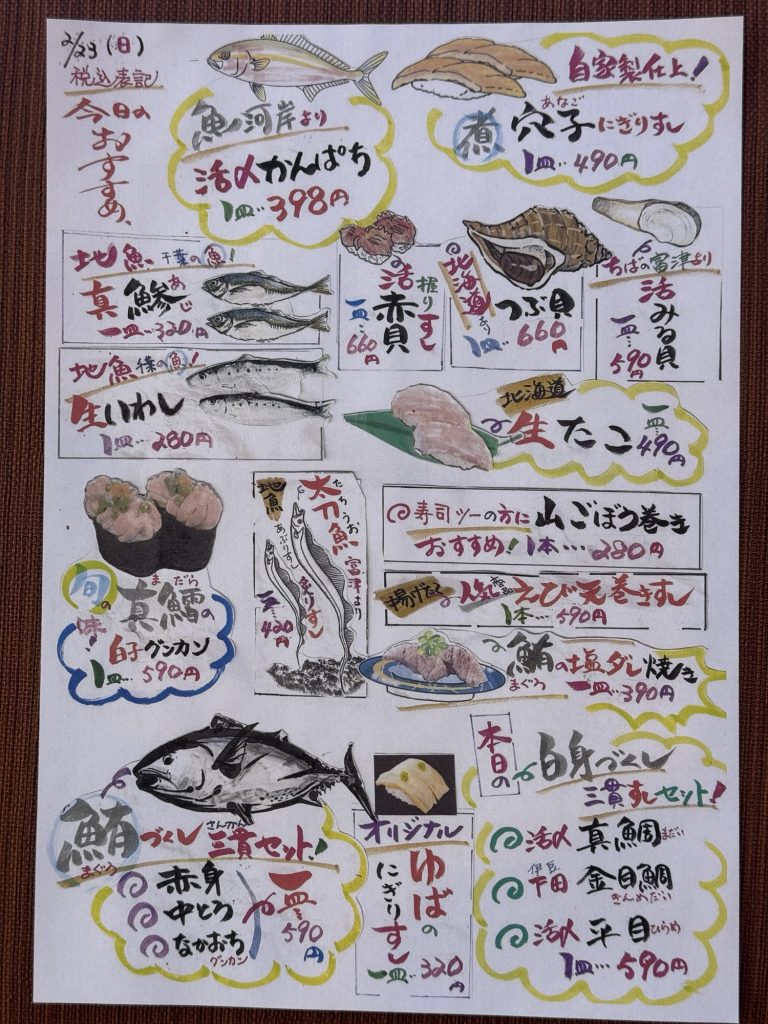 2/23(日)
税込表記
今日の
おすすめ、
魚河岸より
活〆かんぱち
1皿‥398円
自家製仕上!
あなご
煮穴子にぎりすし
1皿‥490円
地魚 千葉の魚!
あじ
真鯵
一皿‥320円
地魚 千葉の魚!
生いわし
1皿‥280円
握りすし
活赤貝
一皿‥660円
北海道より
つぶ貝
1皿‥660円
ちばの富津より
活みる貝
一皿‥590円
北海道
生たこ
一皿‥490円
旬の味!
まだら
真鱈の
白子グンカン
1皿‥590円
地魚
たちうお
太刀魚
富津より
あぶりすし
炙りすし
420円
寿司ツーの方に
おすすめ!
山ごぼう巻き
1本‥‥280円
揚げたて
人気
えび天巻きすし
1本‥590円
鮪の塩ダレ焼き
まぐろ
一皿‥390円
鮪づくし
まぐろ
さんかん
三貫セット!
赤身
中とろ
なかおち
グンカン
一皿‥590円
オリジナル
ゆばの
にぎりすし
一皿‥320円
本日の
白身づくし
三貫すしセット!
活〆 真鯛 まだい
伊豆
下田 金目鯛
きんめだい
活〆 平目 ひらめ
1皿‥590円